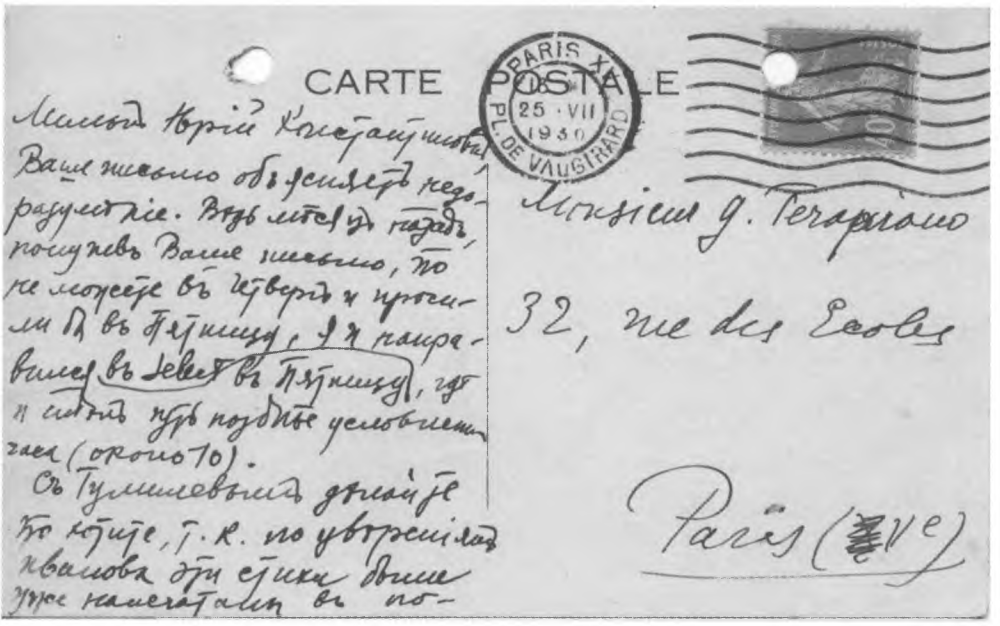 CARTE POSTALE
PARIS XV
18
25 · VII
1930
PL. DE VAUGIRARD
40
Милый Юрій Константинович,
Ваше письмо объясняетъ недо-
разумѣніе. Ведь
получивъ Ваше письмо, что
не можете въ четвергъ и проси-
ли бы въ Пятницу, я и напра-
вился въ Select въ Пятницу, гдѣ
и чуть позднѣе условленнаго
часа (около 10).
Съ Гумилевымъ дѣлайте
что хотите, т. к. по увѣреніямъ
Иванова эти стихи были
уже напечатаны въ по-
Monsieur J. Terapiano
32, rue des Ecoles
Paris (Ve)